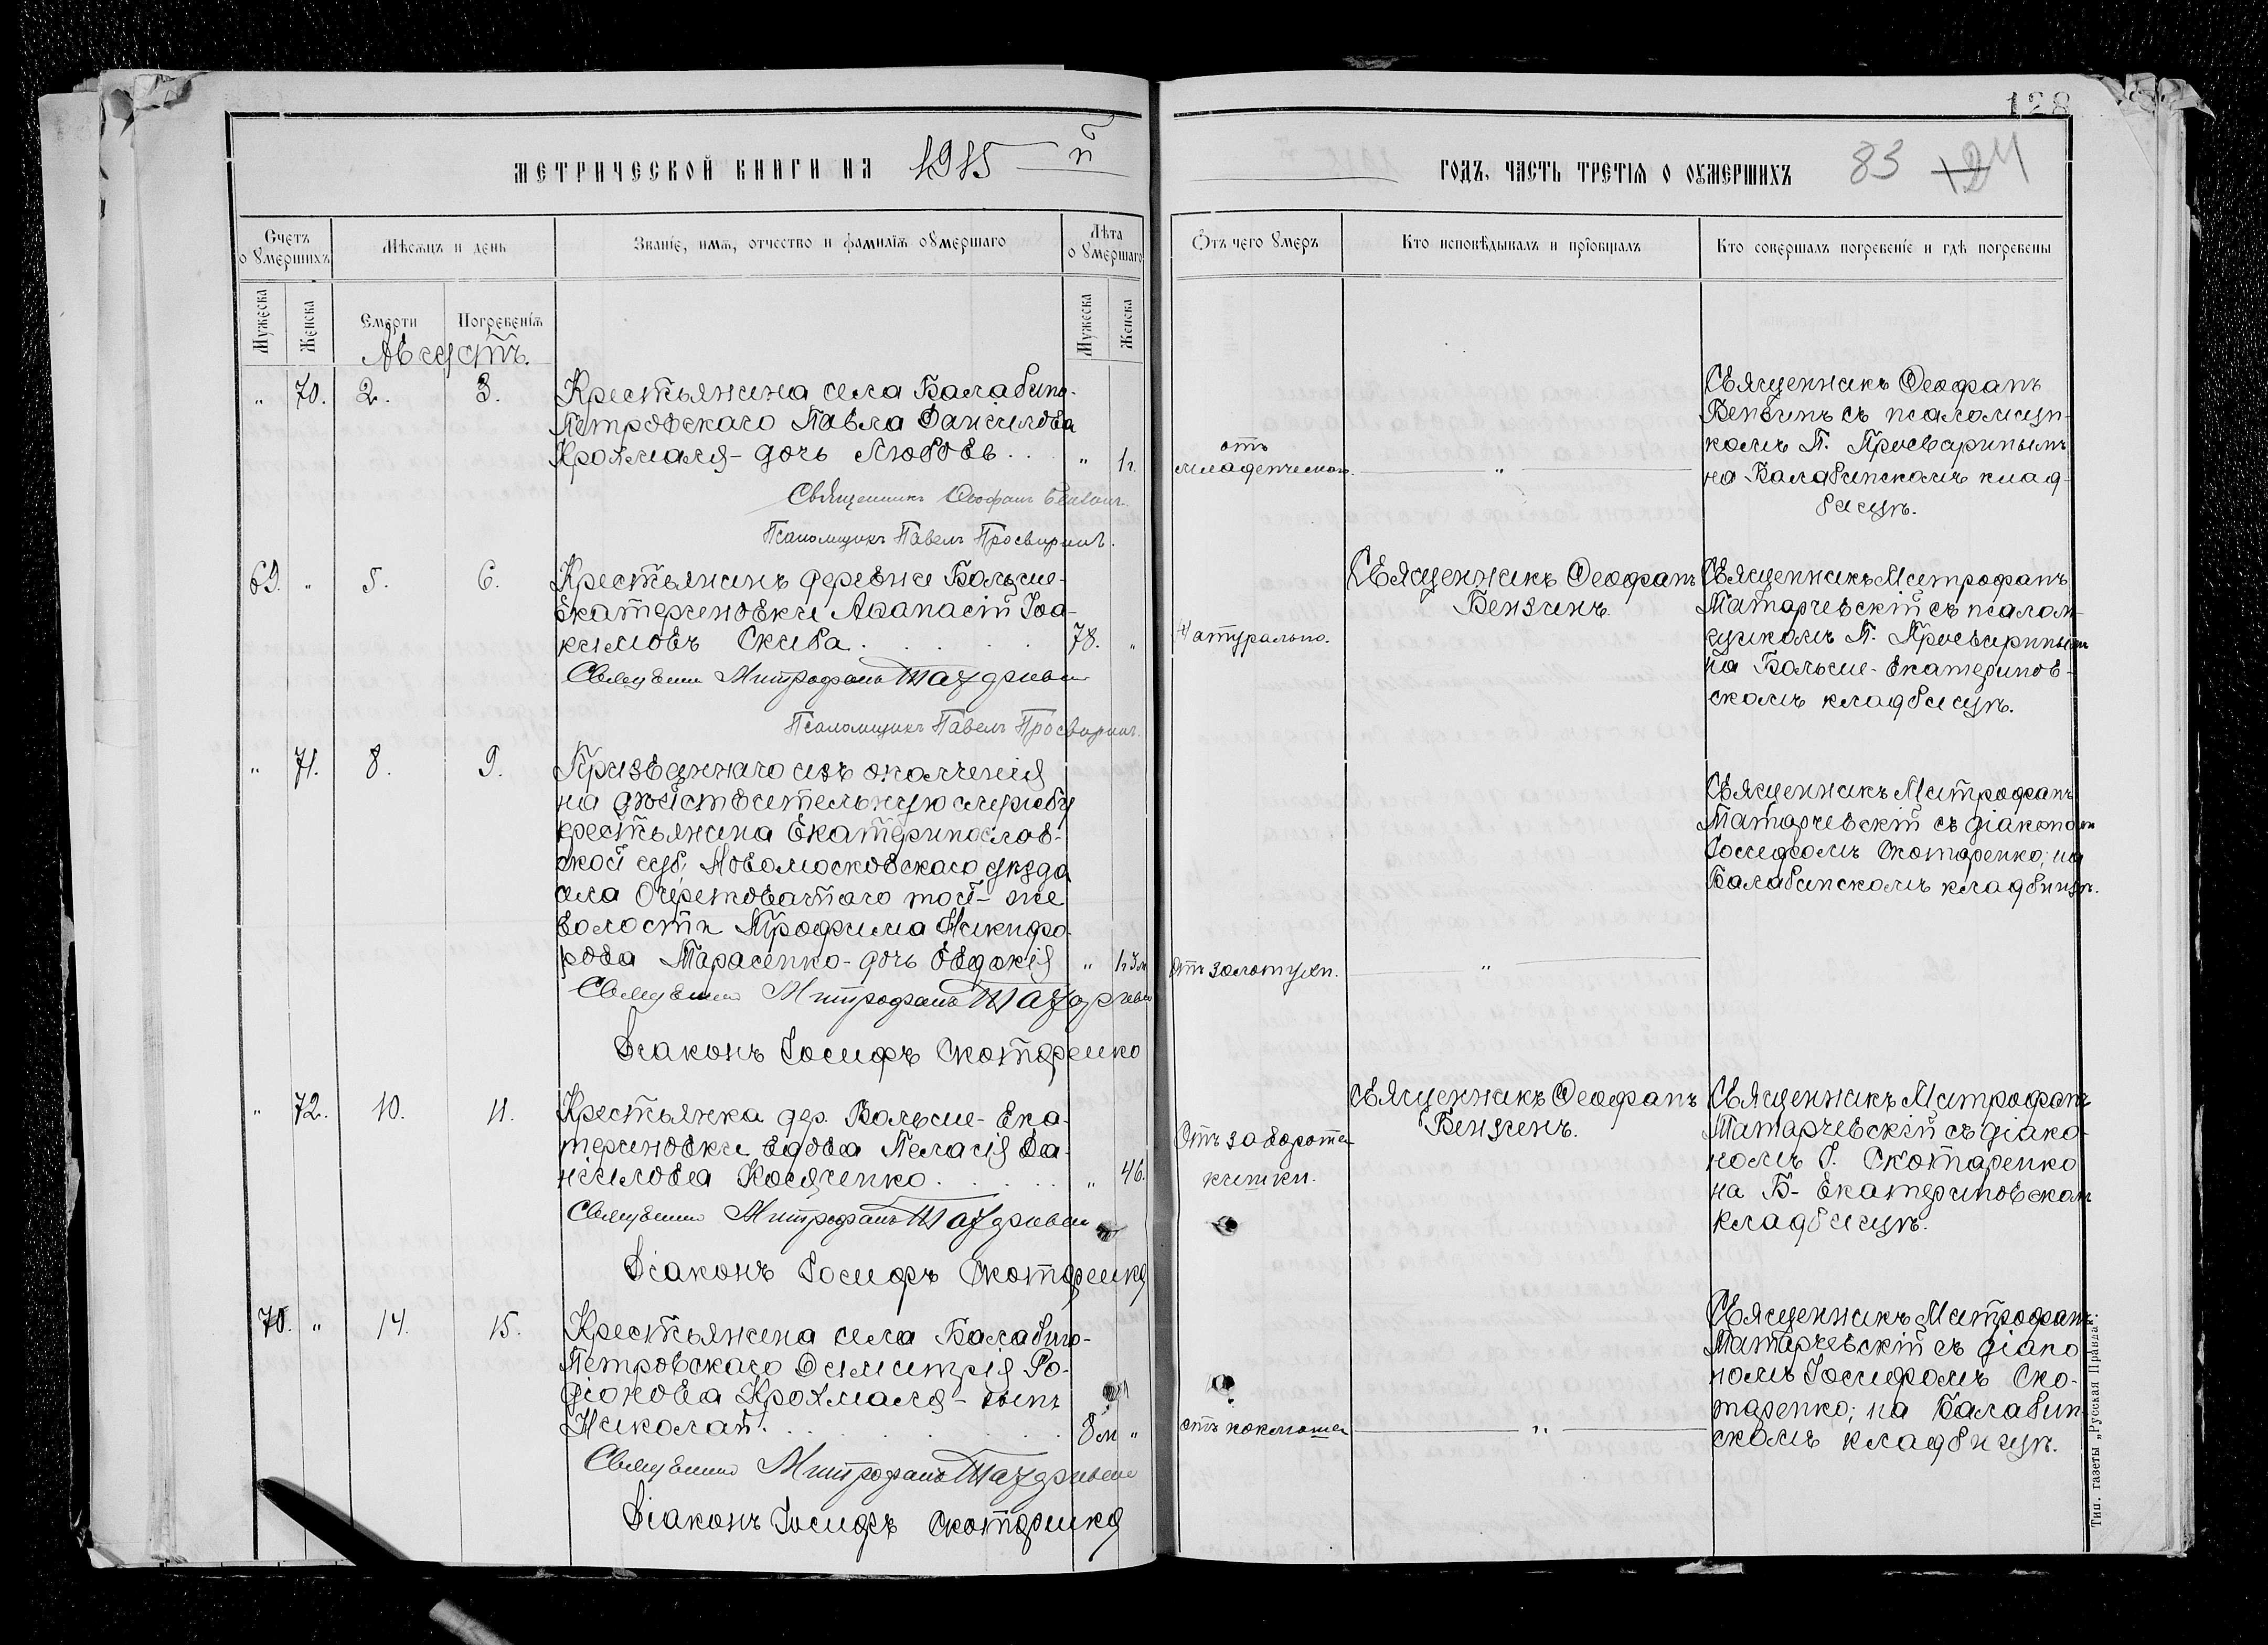 128
МЕТРИЧЕСКОЙ КНИГИ НА 1915 й
ГОДЪ, ЧАСТЬ ТРЕТІЯ О ОУМЕРШИХЪ 83 124
Счетъ о умершихъ
Мѣсяцъ и день
Званіе, имя, отчество и фамилія умершаго
Лѣта о умершаго
Отъ чего умеръ
Кто исповѣдывалъ и пріобщалъ
Кто совершалъ погребеніе и гдѣ погребены
Мужеска
Женска
Смерти
Погребенія
Мужеска
Женска
Августъ.
" 70. 2. 3.
Крестьянина села Балабино-
Петровскаго Павла Даниилова
Крохмаля - дочь Любовь . . " 1г.
Священникъ Ѳеофанъ Бензинъ.
Псаломщикъ Павелъ Просвиринъ.
отъ
младенческой.
"
Священникъ Ѳеофанъ
Бензинъ съ псаломщи-
комъ П. Просвиринымъ
на Балабинскомъ клад-
бищѣ.
69. " 5. 6.
Крестьянинъ деревни Больше-
Екатериновки Аѳанасій Іоа-
кимовъ Скиба . . . . . 78. "
Священникъ Митрофанъ
Псаломщикъ Павелъ Просвиринъ.
Натурально.
Священникъ Ѳеофанъ
Бензинъ.
Священникъ Митрофанъ
Матарчевскій съ псалом-
щикомъ П. Просвиринымъ
на Больше-Екатеринов-
скомъ кладбищѣ.
" 71. 8. 9.
Призваннаго изъ ополченія
на дѣйствительную службу
крестьянина Екатеринослав-
ской губ, Новомосковскаго уѣзда
села Очеретоватаго той-же
волости Трофима Никифо-
рова Тарасенко - дочь Евдокія " 1г.3м.
Священникъ Митрофанъ
Діаконъ Іосифъ Скотаренко
Отъ золотухи.
"
Священникъ Митрофанъ
Матарчевскій съ діакономъ
Іосифомъ Скотаренко; на
Балабинскомъ кладбищѣ.
" 72. 10. 11.
Крестьянка дер. Больше-Ека-
териновки вдова Пелагія Да-
ніилова Косяченко . . . . . " 46.
Священникъ Митрофанъ
Діаконъ Іосифъ Скотаренко
Отъ заворота
кишки.
Священникъ Ѳеофанъ
Бензинъ.
Священникъ Митрофанъ
Матарчевскій съ діако-
номъ І. Скотаренко
на Б- Екатериновскомъ
кладбищѣ.
70. " 14. 15.
Крестьянина села Балабино-
Петровскаго Димитрія Ро-
діонова Крохмаля - сынъ
Николай. . . . . . . 8м "
Священникъ Митрофанъ
Діаконъ Іосифъ Скотаренко
отъ коклюша
"
Священникъ Митрофанъ
Матарчевскій съ діако-
номъ Іосифомъ Ско-
таренко; на Балабин-
скомъ кладбищѣ.
Тип. газеты „Русская Правда".